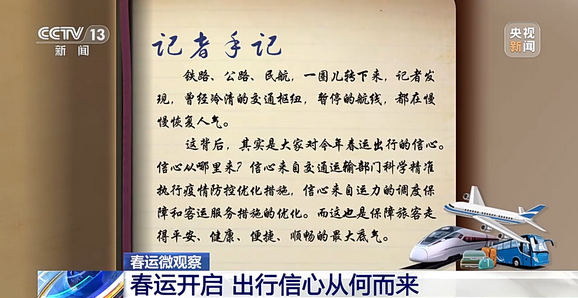 CCTV 13
新闻
央视
新闻
记者手记
铁路、公路、民航，一圈儿转下来，记者发
现，曾经冷清的交通枢纽，暂停的航线，都在慢
慢恢复人气。
这背后，其实是大家对今年春运出行的信心。
信心从哪里来？信心来自交通运输部门科学精准
执行疫情防控优化措施，信心来自运力的调度保
障和客运服务措施的优化。而这也是保障旅客走
得平安、健康、便捷、顺畅的最大底气。
春运微观察
春运开启 出行信心从何而来